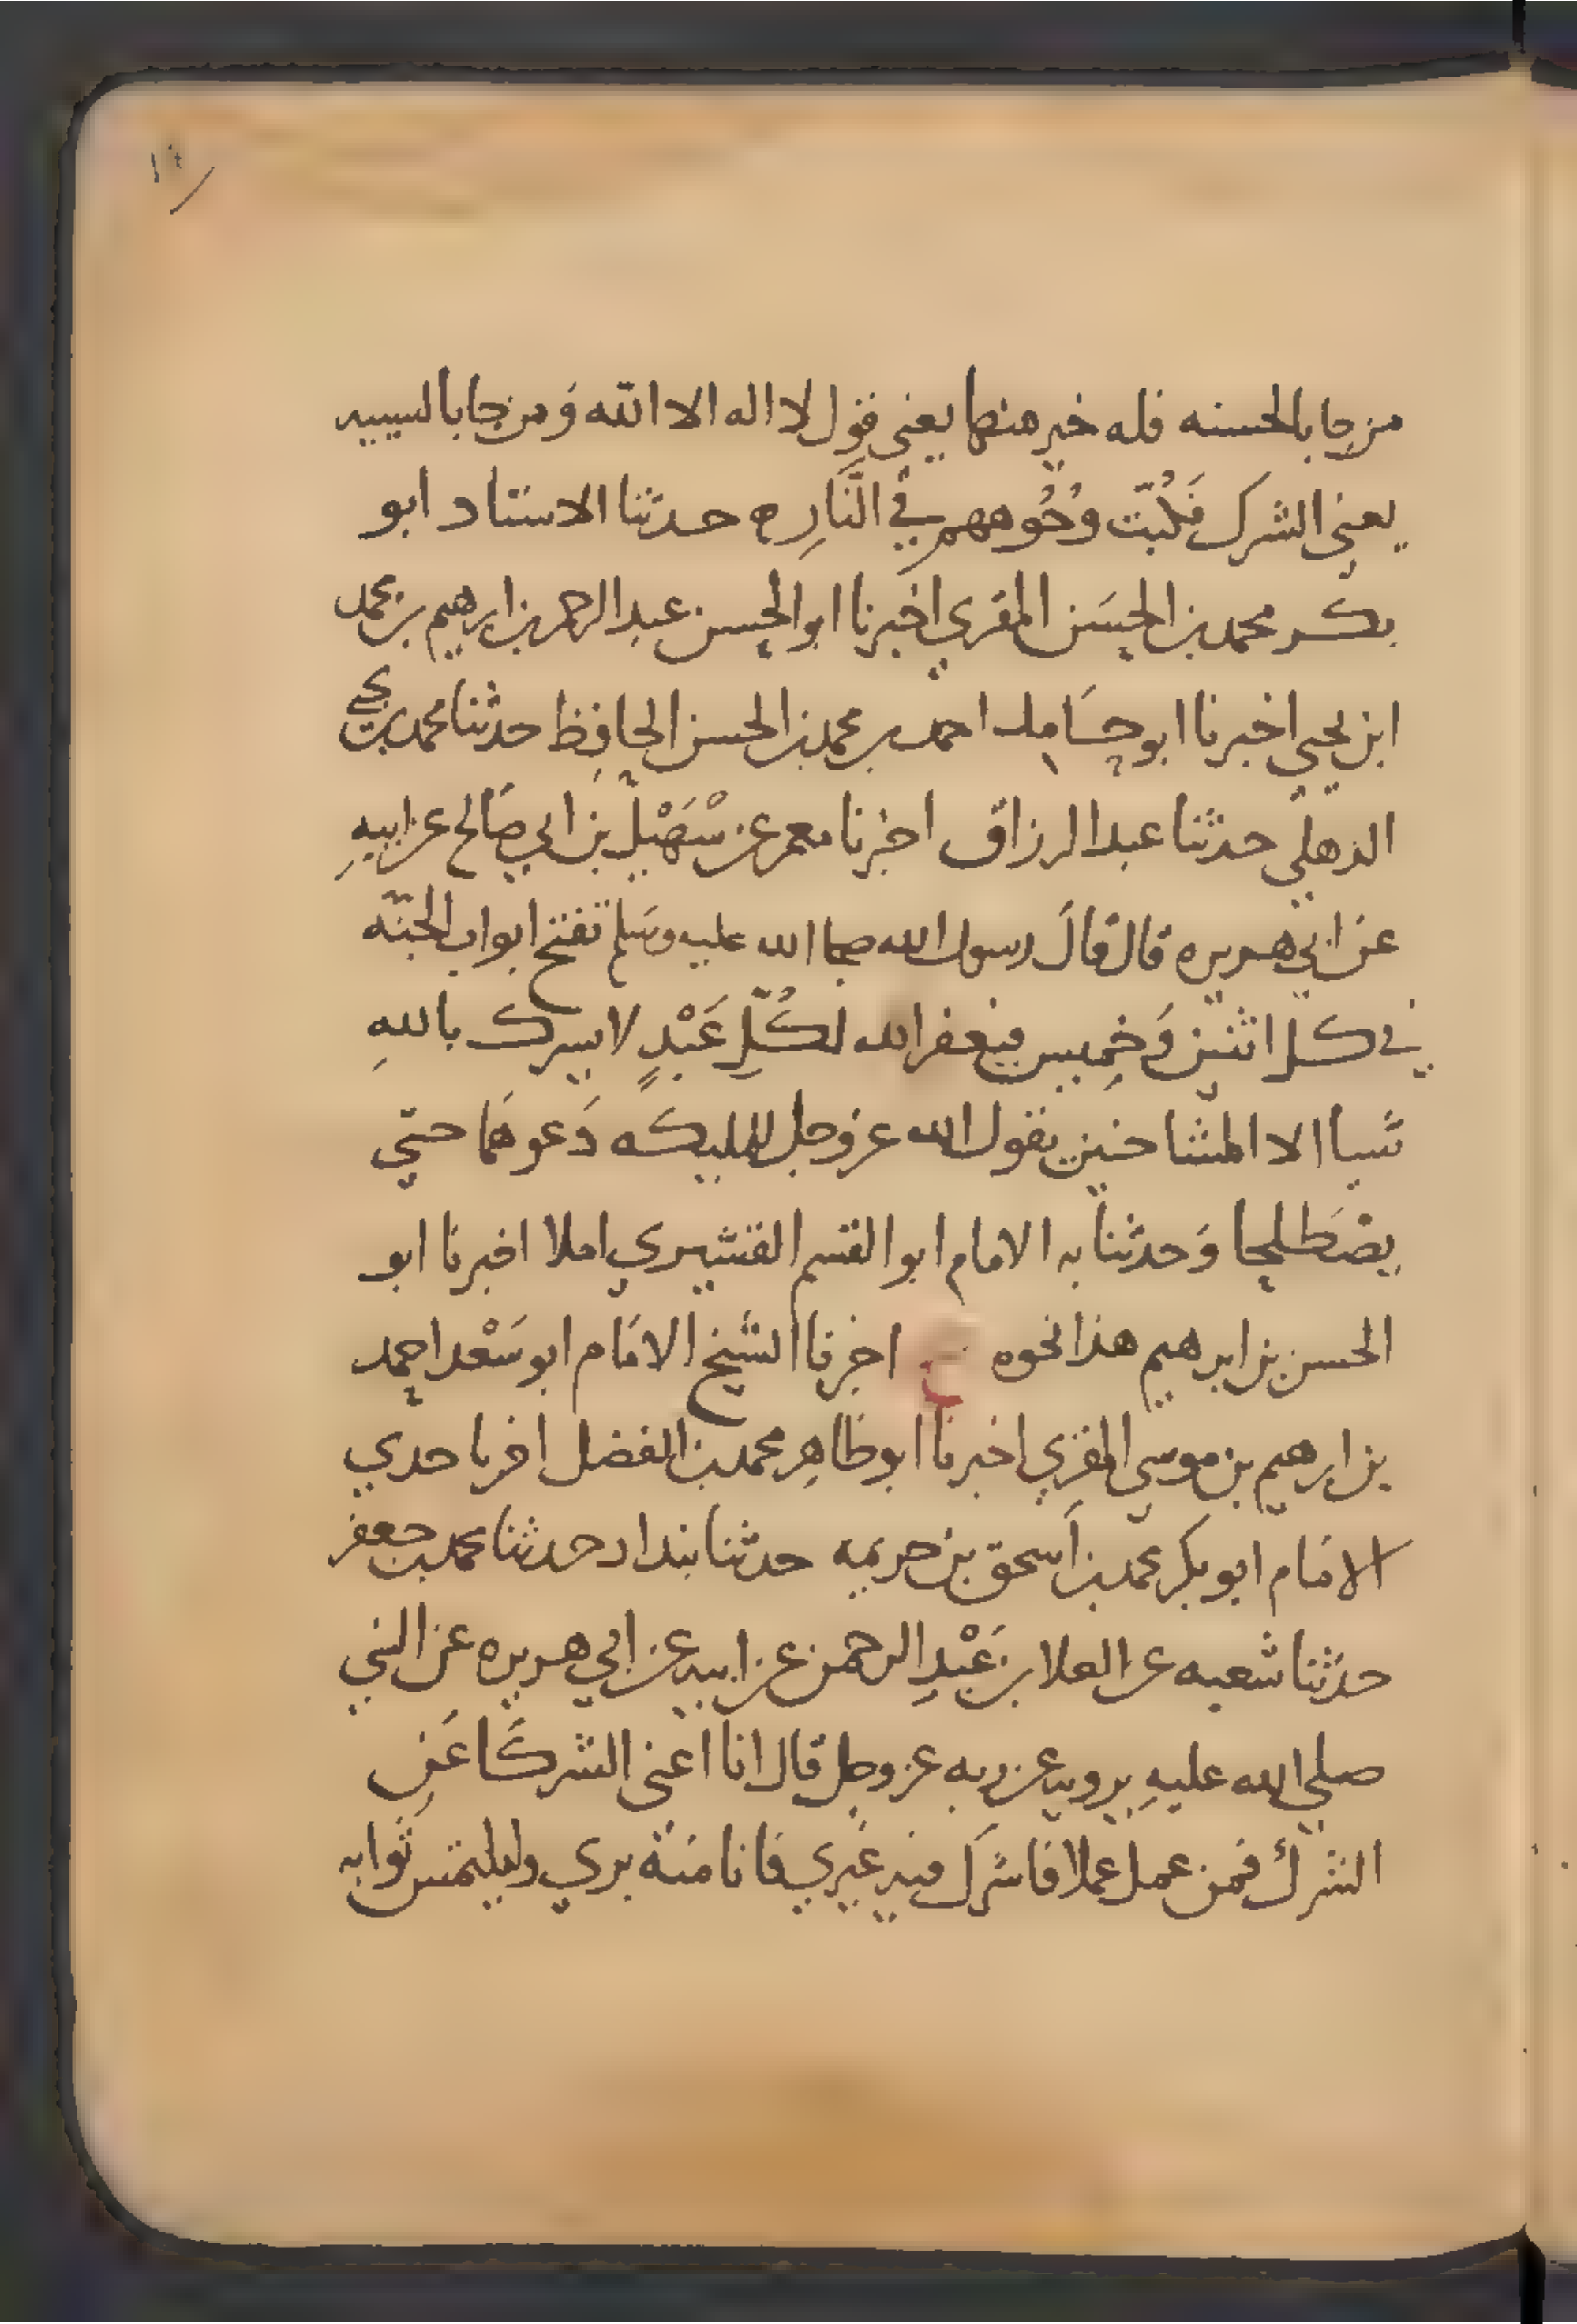 من جا بالحسنه فله خير منها يعني قول لا اله الا الله وَمن جا بالسييه
يعني الشرك فَكُبّت وُجُوههم في النَّارِ ه حدثنا الاستاد ابو
بكر محمد بن الحسَن المقري اخبرنا ابو الحسن عبد الرحمن بن ابرهيم بن محمد
ابن يحيى اخبرنا ابو حَامد احمد بن محمد بن الحسن الحافِظ حدثنا محمد بن يحيى
الذهلي حدثنا عبد الرزاق اخبرنا معمر عن سُهَيْل بن ابي صَالح عن ابيهِ
عن ابي هريره قال قالَ رسول الله صلى الله عليه وسَلم تفتح ابواب الجنّه
في كل اثنين وَخمِيس فيغفر الله لكُلّ عَبْدٍ لا يسرك باللهِ
شيا الا المتشاحنين يقول الله عز وجل للمليكه دَعوهُما حتي
يصْطَلحا وَحدثنا به الامام ابو القسم القشيري املا اخبرنا ابو
الحسن بن ابرهيم هذا نحوه اخبرنا الشيخ الامَام ابو سَعْد احمد
بن ابرهيم بن موسى المقري اخبرنا ابو طاهِر محمد بن الفضل اخبرنا جدي
الامَام ابو بكر محمد بن اسحق بن خزيمه حدثنا بندار حدثنا محمد بن جعفر
حدثنا شعبه عن العلا بن عَبْدِ الرحمن عن ابيه عن ابي هريره عن النبي
صلي الله عليهِ يرويه عن ربه عز وجل قال انا اغنى الشركَا عَنِ
الشرك فمن عمل عملا فاشرَك فيه غيري فانا منهُ بري وليلتمس ثَوابه